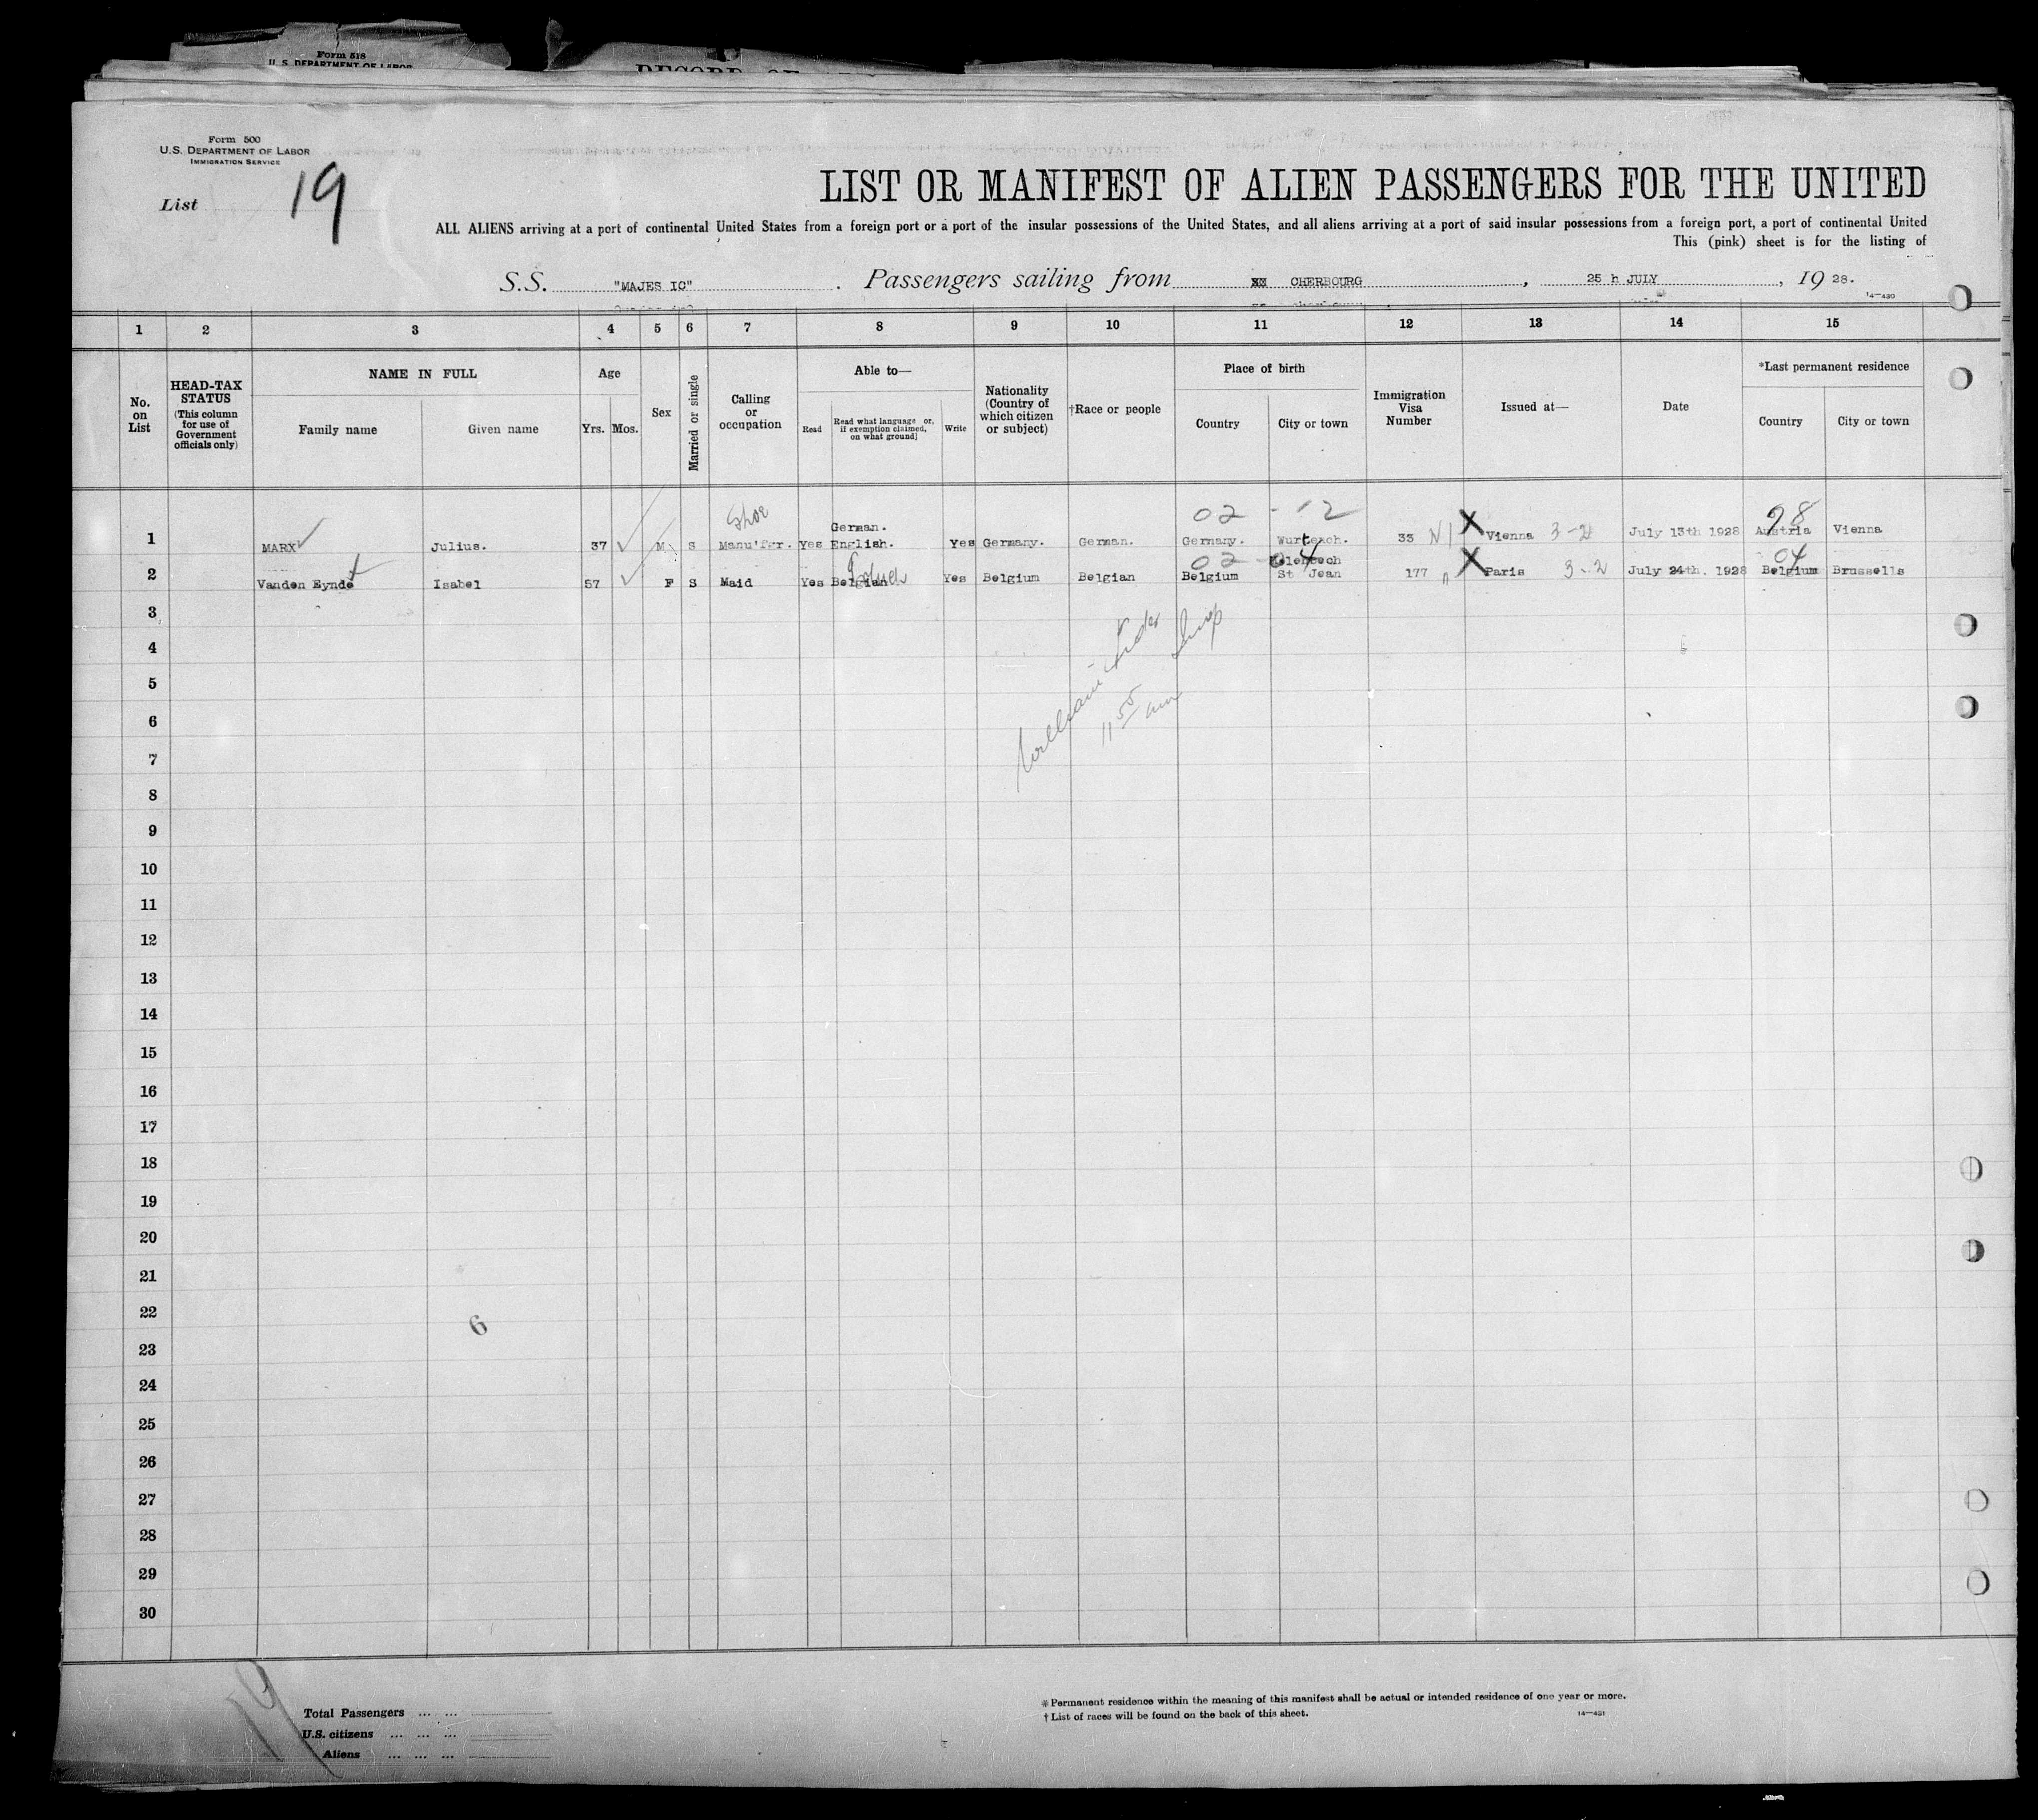 Form 518
U. S. DEPARTMENT OF LABOR
RECORD OF
Form 500
U.S. DEPARTMENT OF LABOR
IMMIGRATION SERVICE
List 19
LIST OR MANIFEST OF ALIEN PASSENGERS FOR THE UNITED
ALL ALIENS arriving at a port of continental United States from a foreign port or a port of the insular possessions of the United States, and all aliens arriving at a port of said insular possessions from a foreign port, a port of continental United
This (pink) sheet is for the listing of
S.S. "MAJES IC". Passengers sailing from XX CHERBOURG, 25 h JULY, 19 28.
14—430
1 2 3 4 5 6 7 8 9 10 11 12 13 14 15
No. on List
HEAD-TAX STATUS (This column for use of Government officials only)
NAME IN FULL
Family name Given name
Age
Yrs. Mos.
Sex
Married or single
Calling or occupation
Able to—
Read Read what language or, if exemption claimed, on what ground] Write
Nationality (Country of which citizen or subject)
†Race or people
Place of birth
Country City or town
Immigration Visa Number
Issued at—
Date
*Last permanent residence
Country City or town
Shoe 02 - 12 98
1 MARX Julius. 37 M S Manu'fgr. Yes German. English. Yes Germany. German. Germany. 33 N1 X Vienna 3-2 July 13th 1928 Austria Vienna
02 04
2 Vanden Eynde Isabel 57 F S Maid Yes Belgian Yes Belgium Belgian Belgium St Jean 177 X Paris 3-2 July 24th. 1928 Belgium Brussells
3
4
William
5
11 55 am
6
7
8
9
10
11
12
13
14
15
16
17
18
19
20
21
22
6
23
24
25
26
27
28
29
30
19
Total Passengers ... ...
U.S. citizens ... ... ...
Aliens ... ... ...
* Permanent residence within the meaning of this manifest shall be actual or intended residence of one year or more.
† List of races will be found on the back of this sheet.
14—431